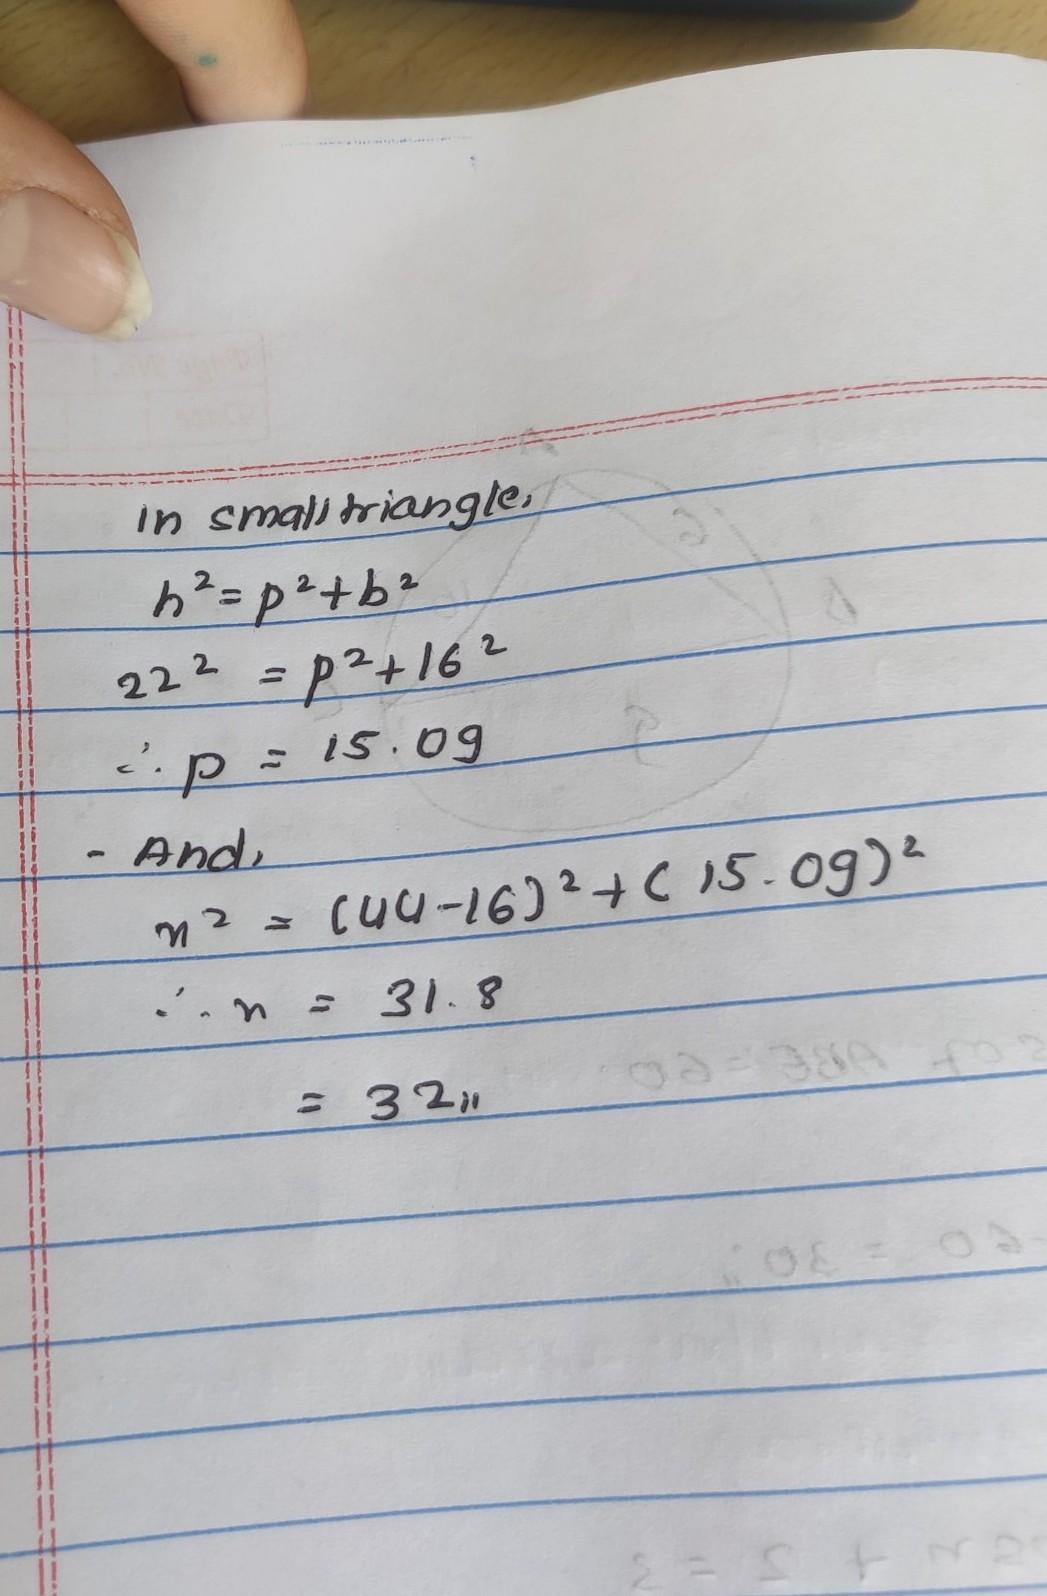 In small triangle,
h² = p² + b²
22² = p² + 16²
∴ p = 15.09
- And,
x² = (44-16)² + (15.09)²
∴ x = 31.8
= 32,,